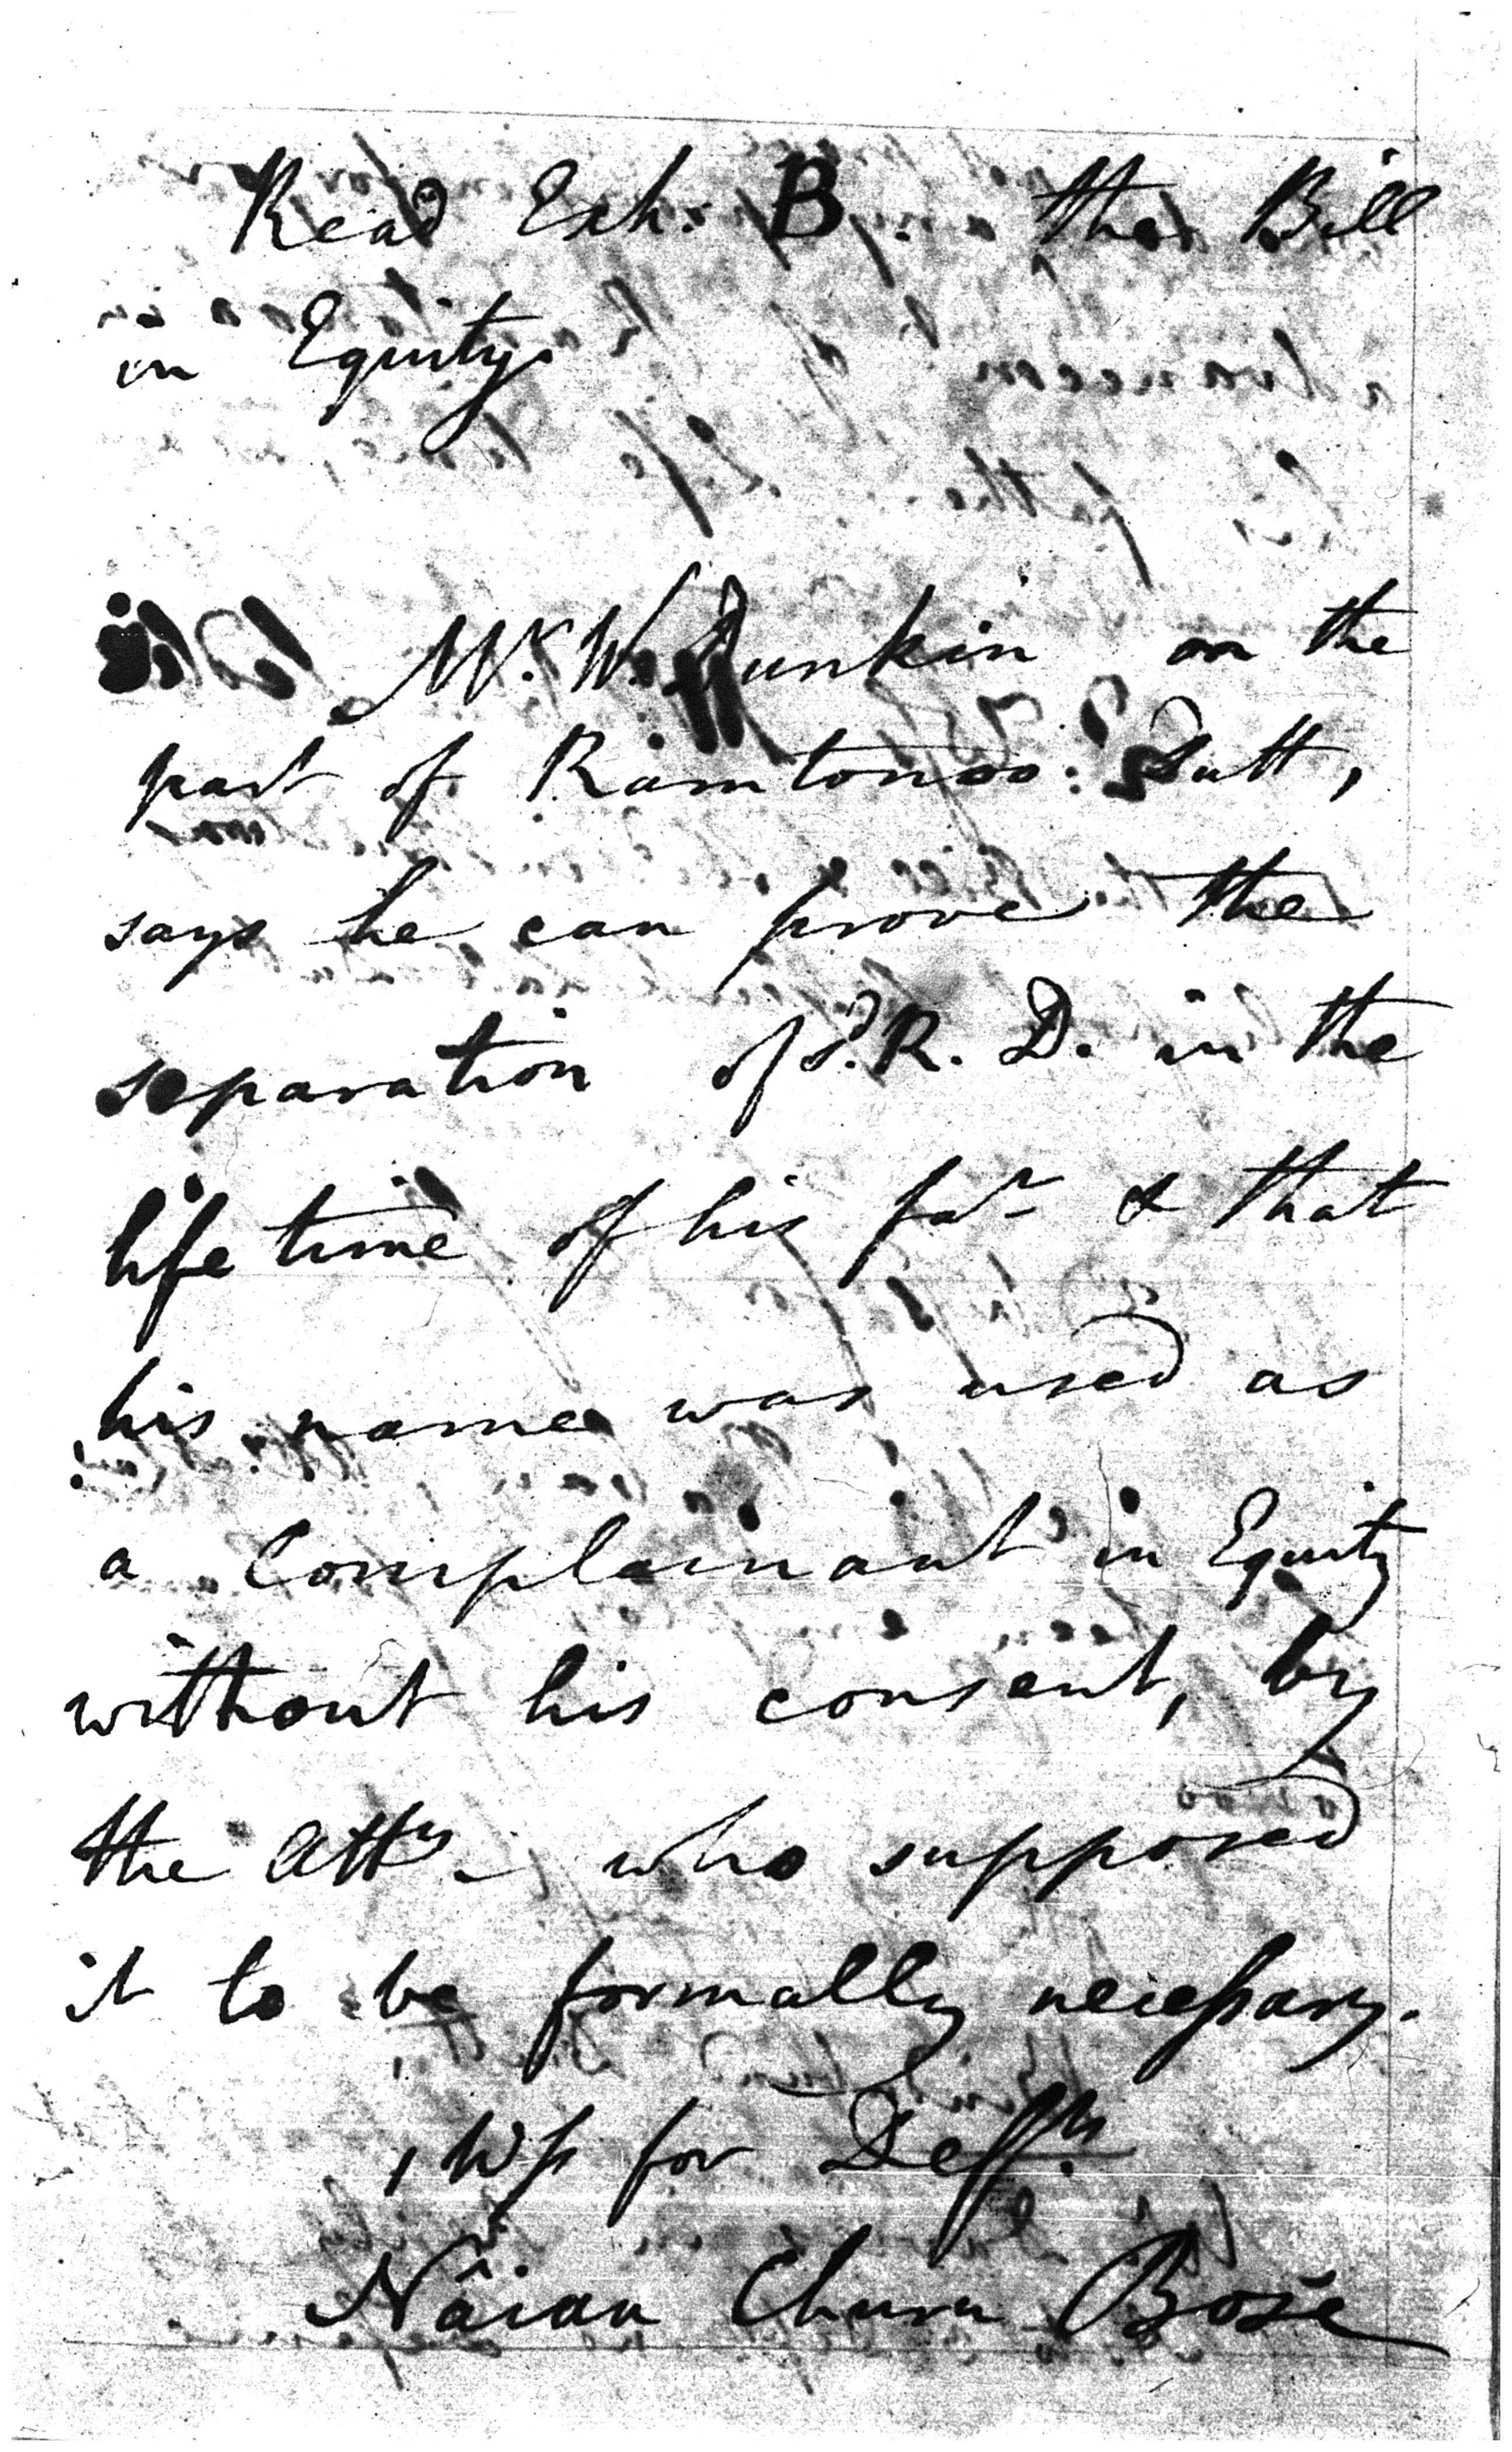 Read Exh: B. the Bill
in Equity.
Mr. W. Dunkin on the
part of Ramtonoo: Dutt,
says he can prove the
separation of s.d R. D. in the
life time of his far & that
his name was used as
a Complainant in Equity
without his consent, by
the Atty. who supposed
it to be formally necessary.
1 Wss for Deffts.
Churn Bose